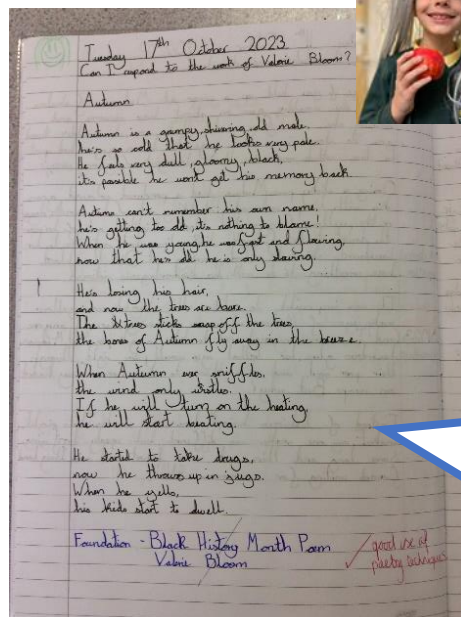 Tuesday 17th October 2023
Can I respond to the work of Valerie Bloom?
Autumn
Autumn is a grumpy, shivering old male,
he's so cold that he looks very pale.
He feels very dull, gloomy, black,
it's possible he won't get his memory back.
Autumn can't remember his own name,
he's getting too old, it's nothing to blame!
When he was young, he was fast and flowing,
now that he's old he is only slowing.
He's losing his hair,
and now the trees are bare.
The trees sticks snap off the trees,
the bones of Autumn fly away in the breeze.
When Autumn ever sniffles,
the wind only wistles.
If he will turn on the heating,
he will start beating.
He started to take drugs,
now he throws up in jugs.
When he yells,
his kids start to dwell.
Foundation - Black History Month Poem
Valerie Bloom
good use of
poetry techniques